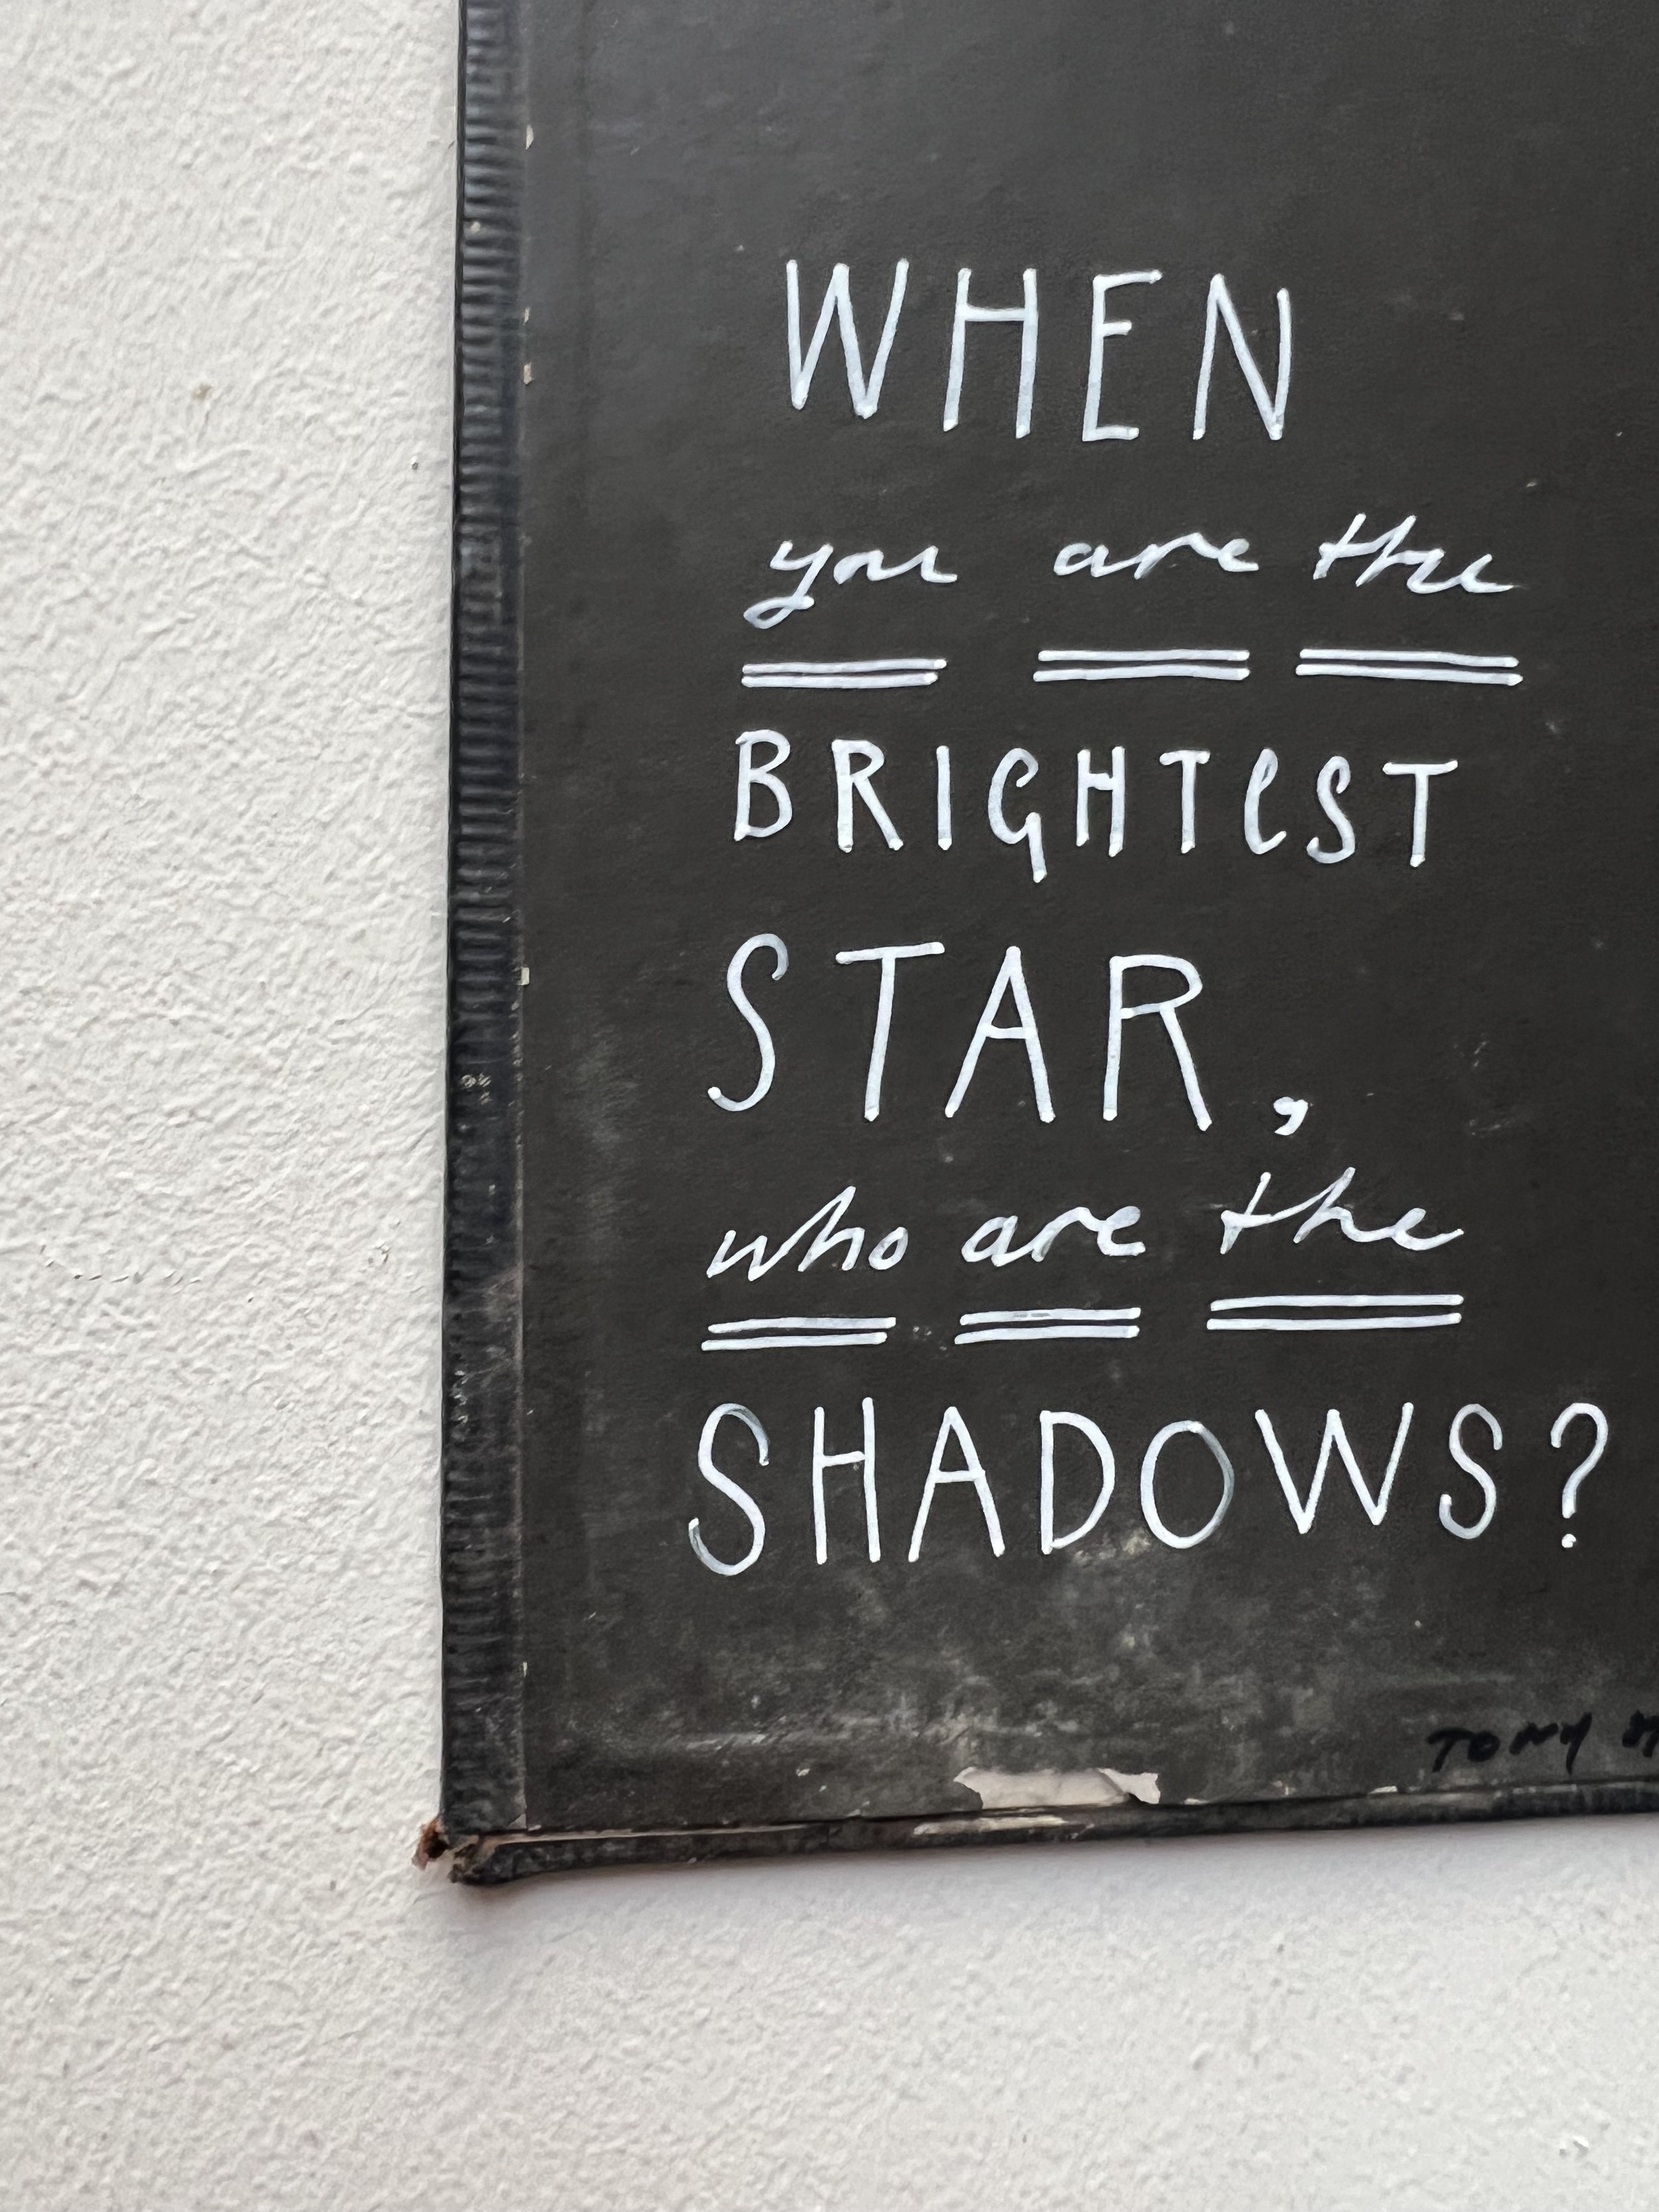 WHEN
you are the
BRIGHTEST
STAR,
who are the
SHADOWS?
TONY